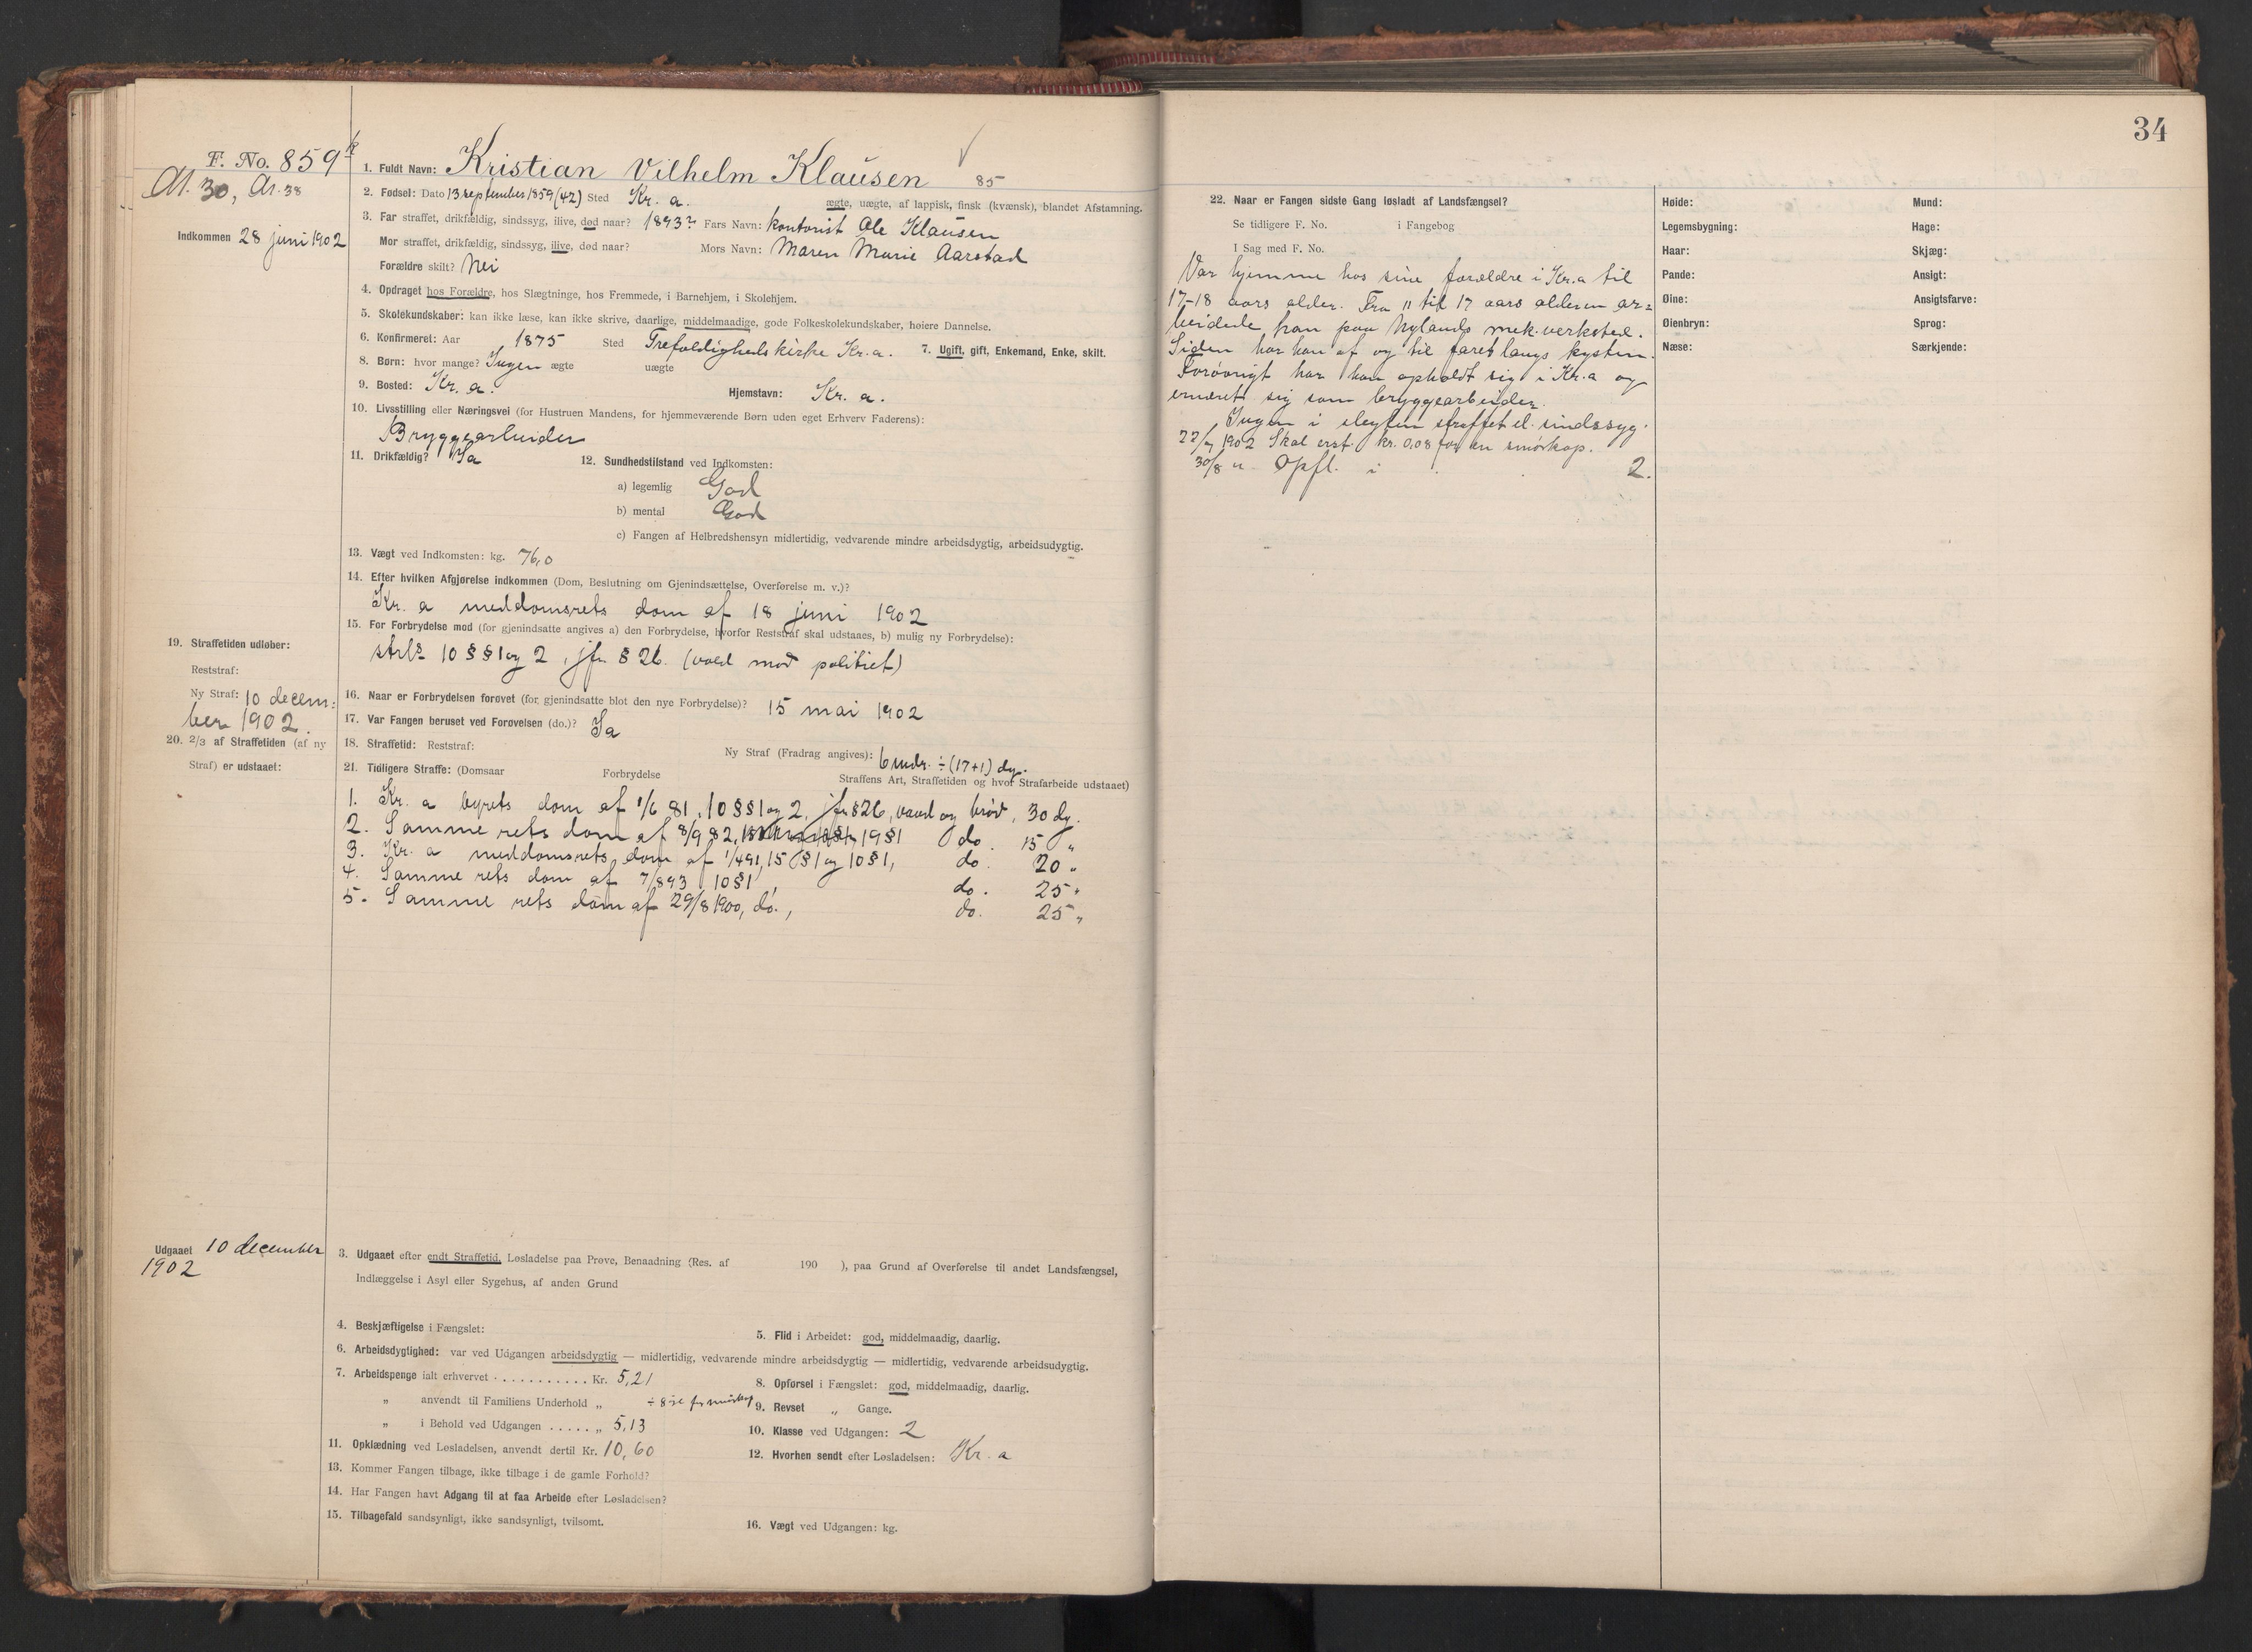 34
F. No. 859
Al. 30, Ar. 38
Indkommen 28 juni 1902
1. Fuldt Navn: Kristian Vilhelm Klausen 85
2. Fødsel: Dato 13 september 1859 (42) Sted Kr. a. ægte, uægte, af lappisk, finsk (kvænsk), blandet Afstamning.
3. Far straffet, drikfældig, sindssyg, ilive, død naar? 1893? Fars Navn: kontorist Ole Klausen
Mor straffet, drikfældig, sindssyg, ilive, død naar? Mors Navn: Maren Marie Aarstad
Forældre skilt? Nei
4. Opdraget hos Forældre, hos Slægtninge, hos Fremmede, i Barnehjem, i Skolehjem.
5. Skolekundskaber: kan ikke læse, kan ikke skrive, daarlige, middelmaadige, gode Folkeskolekundskaber, høiere Dannelse.
6. Konfirmeret: Aar 1875 Sted Trefoldigheds kirke Kr. a. 7. Ugift, gift, Enkemand, Enke, skilt.
8. Børn: hvor mange? Ingen ægte uægte
9. Bosted: Kr. a. Hjemstavn: Kr. a.
10. Livsstilling eller Næringsvei (for Hustruen Mandens, for hjemmeværende Børn uden eget Erhverv Faderens):
Bryggearbeider
11. Drikfældig? Ja 12. Sundhedstilstand ved Indkomsten:
a) legemlig God
b) mental God
c) Fangen af Helbredshensyn midlertidig, vedvarende mindre arbeidsdygtig, arbeidsudygtig.
13. Vægt ved Indkomsten: kg. 76,0
14. Efter hvilken Afgjørelse indkommen (Dom, Beslutning om Gjenindsættelse, Overførelse m. v.)?
Kr. a meddomsrets dom af 18 juni 1902
15. For Forbrydelse mod (for gjenindsatte angives a) den Forbrydelse, hvorfor Reststraf skal udstaaes, b) mulig ny Forbrydelse):
strls 10 § § 1 og 2, jfr. § 26. (vold mod politiet)
19. Straffetiden udløber:
Reststraf:
Ny Straf: 10 decem:
ber 1902.
16. Naar er Forbrydelsen forøvet (for gjenindsatte blot den nye Forbrydelse)? 15 mai 1902
17. Var Fangen beruset ved Forøvelsen (do.)? Ja
20. 2/3 af Straffetiden (af ny
Straf) er udstaaet:
18. Straffetid: Reststraf: Ny Straf (Fradrag angives): 6 mdr. ÷ (17+1) dg.
21. Tidligere Straffe: (Domsaar Forbrydelse Straffens Art, Straffetiden og hvor Strafarbeide udstaaet)
1. Kr. a byrets dom af 1/6 81, 10 § § 1 og 2, jfr § 26, vand og brød, 30 dg.
2. Samme rets dom af 8/9 82, 19 § 1 do. 15 „
3. Kr. a meddomsrets dom af 1/4 91, 15 § 1 og 10 § 1, do. 20 „
4. Samme rets dom af 7/8 93 10 § 1, do. 25 „
5. Samme rets dom af 29/8 1900, do., do. 25 „
Udgaaet 10 december
1902
3. Udgaaet efter endt Straffetid, Løsladelse paa Prøve, Benaadning (Res. af 190 ), paa Grund af Overførelse til andet Landsfængsel,
Indlæggelse i Asyl eller Sygehus, af anden Grund
4. Beskjæftigelse i Fængslet:
5. Flid i Arbeidet: god, middelmaadig, daarlig.
6. Arbeidsdygtighed: var ved Udgangen arbeidsdygtig — midlertidig, vedvarende mindre arbeidsdygtig — midlertidig, vedvarende arbeidsudygtig.
7. Arbeidspenge ialt erhvervet . . . . . . . . . . . Kr. 5,21
8. Opførsel i Fængslet: god, middelmaadig, daarlig.
„ anvendt til Familiens Underhold „ ÷ 8 øre for smørkop
9. Revset „ Gange.
„ i Behold ved Udgangen . . . . . „ 5,13
10. Klasse ved Udgangen: 2
11. Opklædning ved Løsladelsen, anvendt dertil Kr. 10,60
12. Hvorhen sendt efter Løsladelsen: Kr. a
13. Kommer Fangen tilbage, ikke tilbage i de gamle Forhold?
14. Har Fangen havt Adgang til at faa Arbeide efter Løsladelsen?
15. Tilbagefald sandsynligt, ikke sandsynligt, tvilsomt.
16. Vægt ved Udgangen: kg.
22. Naar er Fangen sidste Gang løsladt af Landsfængsel?
Se tidligere F. No. i Fangebog
I Sag med F. No.
Var hjemme hos sine forældre i Kr.a til
17-18 aars alder. Fra 11 til 17 aars alderen ar=
beidede han paa Nylands mek. verksted.
Siden har han af og til faret langs kysten.
Forøvrigt har han opholdt sig i Kr.a og
ernæret sig som bryggearbeider.
Ingen i slegten straffet el. sindssyg.
22/7 1902 Skal erst. kr. 0,08 for en smørkop.
30/8 „ Opfl. i 2.
Høide:
Legemsbygning:
Haar:
Pande:
Øine:
Øienbryn:
Næse:
Mund:
Hage:
Skjæg:
Ansigt:
Ansigtsfarve:
Sprog:
Særkjende: